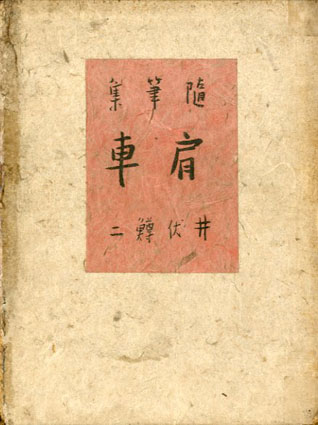 随筆集
肩車
井伏鱒二